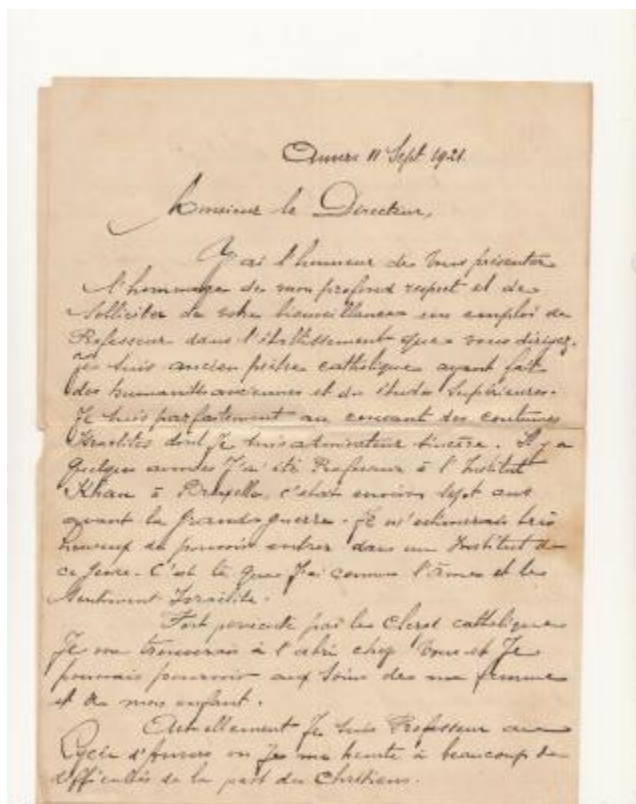 Anvers 11 Sept 1921.
Monsieur le Directeur,
J'ai l'honneur de vous présenter
l'hommage de mon profond respect et de
solliciter de votre bienveillance un emploi de
Professeur dans l'établissement que vous dirigez.
Je suis ancien prêtre catholique ayant fait
des humanités anciennes et des études supérieures.
Je suis parfaitement au courant des coutumes
Israélites dont je suis admirateur sincère. Il y a
quelques années j'ai été Professeur à l'Institut
Khan à Bruxelles, c'était environ sept ans
avant la grande guerre. Je m'estimerais très
heureux de pouvoir entrer dans un Institut de
ce genre. C'est là que j'ai connu l'âme et les
sentiment Israélite.
Fort persécuté par les Clergé catholique
Je me trouverais à l'abri chez vous et Je
pourrais pourvoir aux soins de ma femme
et de mon enfant.
Actuellement Je suis Professeur au
Lycée d'Anvers où Je me heurte à beaucoup de
difficultés de la part des Chrétiens.